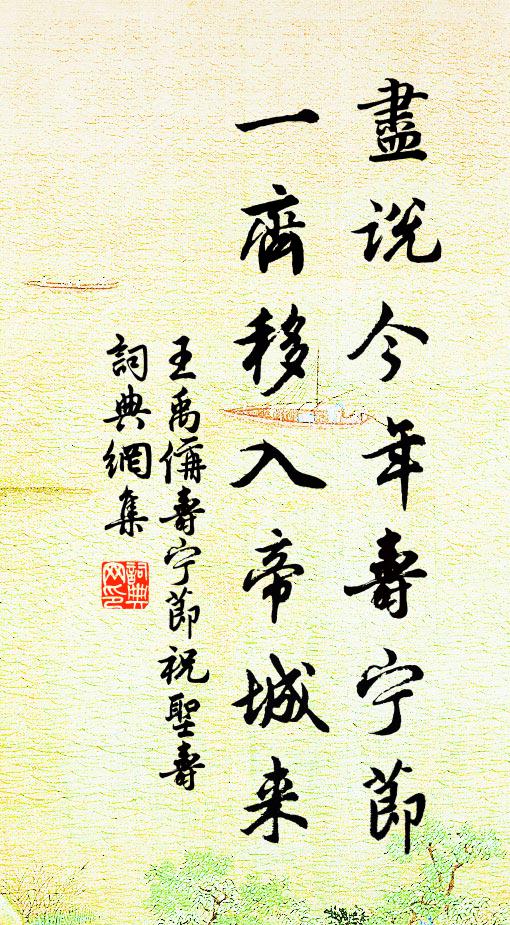 盡說今年壽宁節
一齊移入帝城来
王禹偁壽宁節祝聖壽
詞典網集
詞典网印